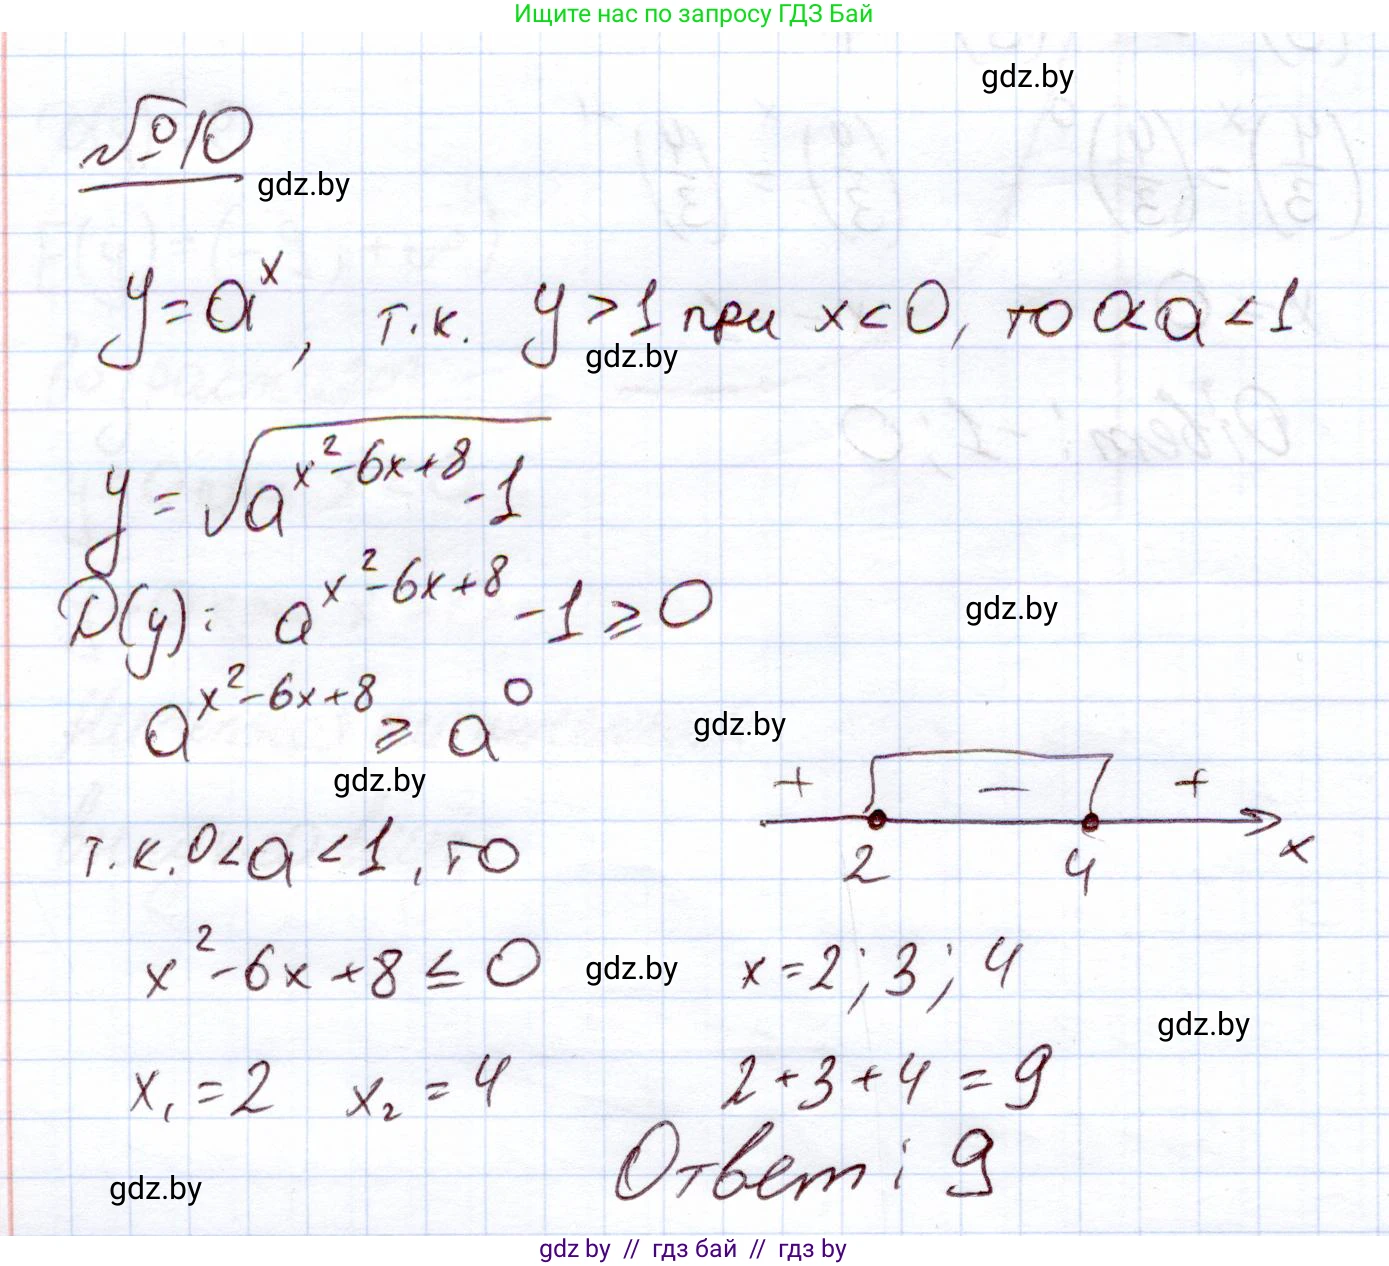 Ищите нас по запросу ГДЗ Бай
gdz.by
№10
gdz.by
y = a^x, т.к. y > 1 при x < 0, то 0 < a < 1
gdz.by
y = √(a^(x²-6x+8) - 1)
D(y): a^(x²-6x+8) - 1 ≥ 0
gdz.by
a^(x²-6x+8) ≥ a^0
gdz.by
gdz.by
+ − +
2 4 x
т.к. 0 < a < 1, то
x² - 6x + 8 ≤ 0
gdz.by
x = 2; 3; 4
gdz.by
x₁ = 2 x₂ = 4
2 + 3 + 4 = 9
Ответ: 9
gdz.by
gdz by // гдз бай // гдз by